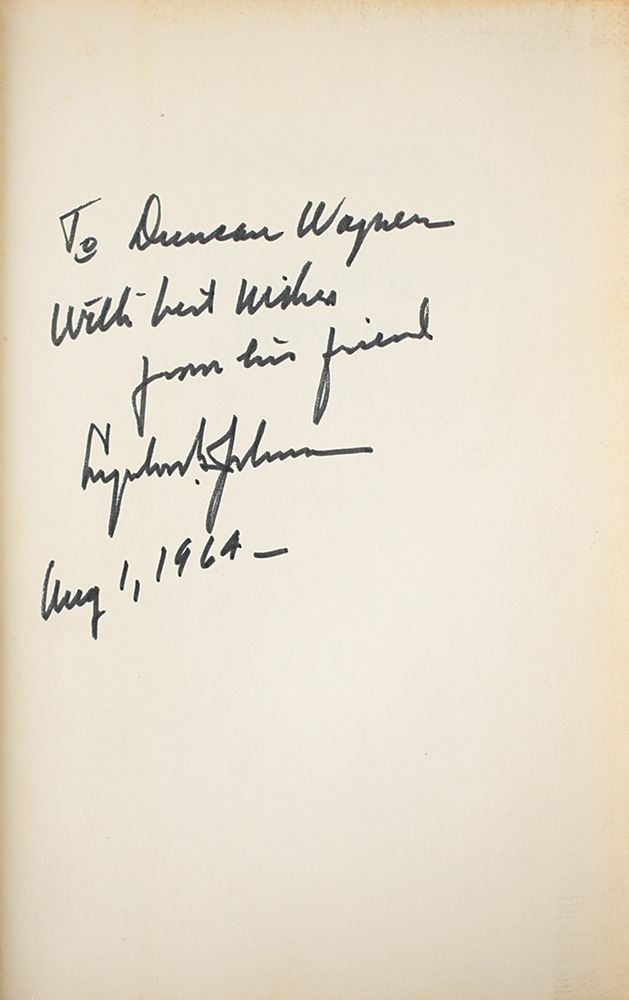 To Duncan Wagner
With best wishes
from his friend
Lyndon B. Johnson
Aug 1, 1964 –